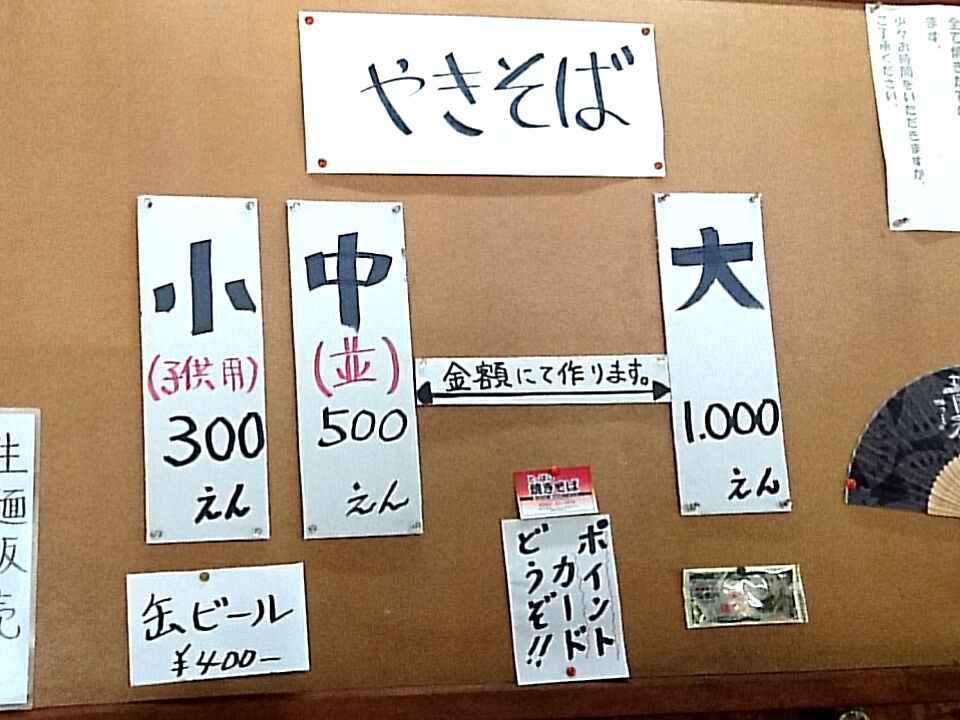 やきそば
小
(子供用)
300
えん
中
(並)
500
えん
金額にて作ります。
大
1.000
えん
缶ビール
¥400−
焼きそば
ポイント
カード
どうぞ!!
生麺販売
ます。
少々お時間をいただきますが、
ご了承ください。